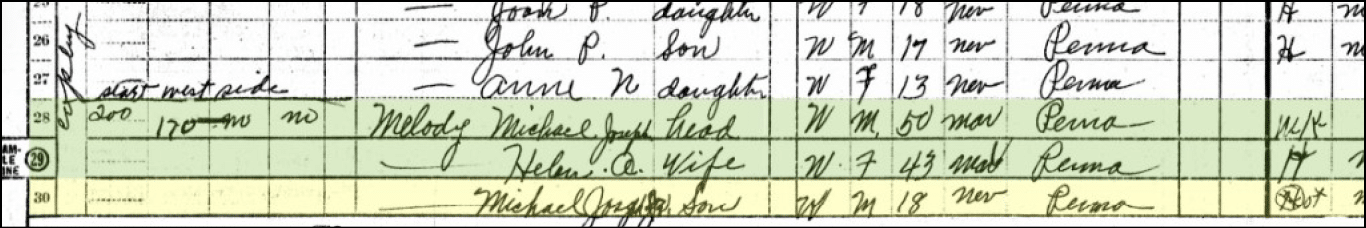 Joan P. daughter W F 18 nev Penna H
26 — John P. Son W M 17 nev Penna H
27 — Anne N daughter W F 13 nev Penna
start west side
28 200 170 no no Melody Michael Joseph head W M 50 mar Penna
29 — Helen A. Wife W F 43 mar Penna H
30 — Michael Joseph Jr Son W M 18 nev Penna